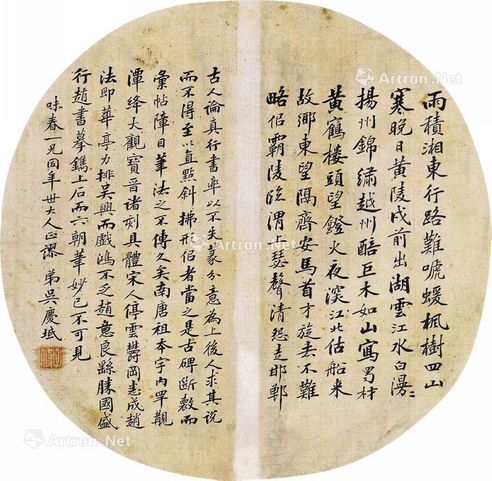 雨積湘東行路難嗁蝯楓樹四山
寒晚日黃陵戍前出湖雲江水白漫〻
揚州錦繡越州醅巨木如山寫蜀材
黃鶴樓頭望鐙火夜深江北估船來
故鄉東望隔齊安馬首才旋去不難
略侶霸陵臨渭上瑟聲清怨走邯鄲
古人論真行書率以不失篆分意為上後人求其說
而不得至以直點斜拂形侶者當之是古碑斷數而
彙帖障目筆法之不傳久矣南唐祖本宇內罕覯
潭絳大觀寶晉諸刻具體宋人停雲鬱岡悉成趙
法即華亭力排吳興而戲鴻不乏趙意良繇勝國盛
行趙書摹鐫上石而六朝筆妙已不可見
味春一兄同年世大人正謬 弟吳慶坻
Artron.Net
Artron.Net
Artron.Net
Artron.Net